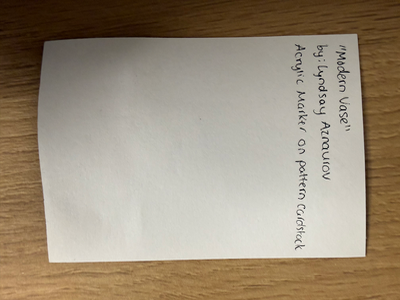 "Modern Vase"
by: Lyndsay Aznaurov
Acrylic Marker on pattern cardstock